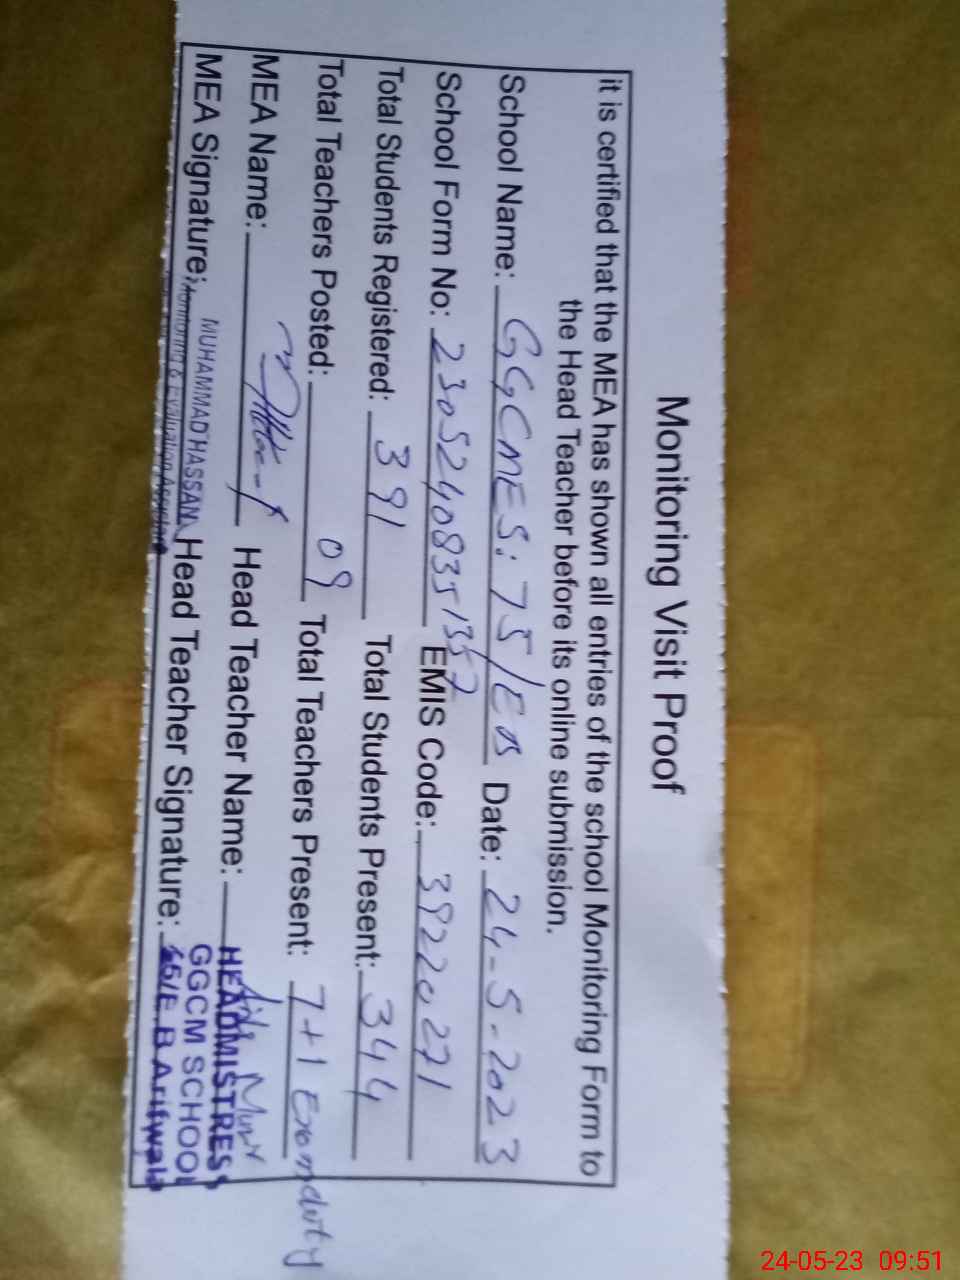 Monitoring Visit Proof
it is certified that the MEA has shown all entries of the school Monitoring Form to
the Head Teacher before its online submission.
School Name: GGCMES: 75/EB Date: 24-5-2023
School Form No: 230524083513 EMIS Code: 39220271
Total Students Registered: 391 Total Students Present: 344
Total Teachers Posted: 09 Total Teachers Present: 7+1 Exam duty
MEA Name: Head Teacher Name:
MEA Signature: MUHAMMAD HASSAN Head Teacher Signature:
Monitoring & Evaluation Assistant
HEADMISTRESS
GGCM SCHOOL
E.B Arifwala
24-05-23 09:51